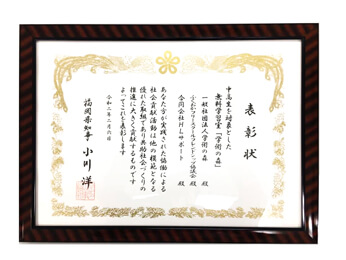 表彰状
中高生を対象とした
無料学習室「学術の森」
一般社団法人学術の森 殿
ふくおかフリースクールフレンドシップ協議会 殿
合同会社HLサポート 殿
あなた方が実践された協働による
社会貢献活動は他の模範となる
優れた取組であり共助社会づくりの
推進に大きく貢献するものです
よってこれを表彰します
令和二年二月六日
福岡県知事 小川 洋